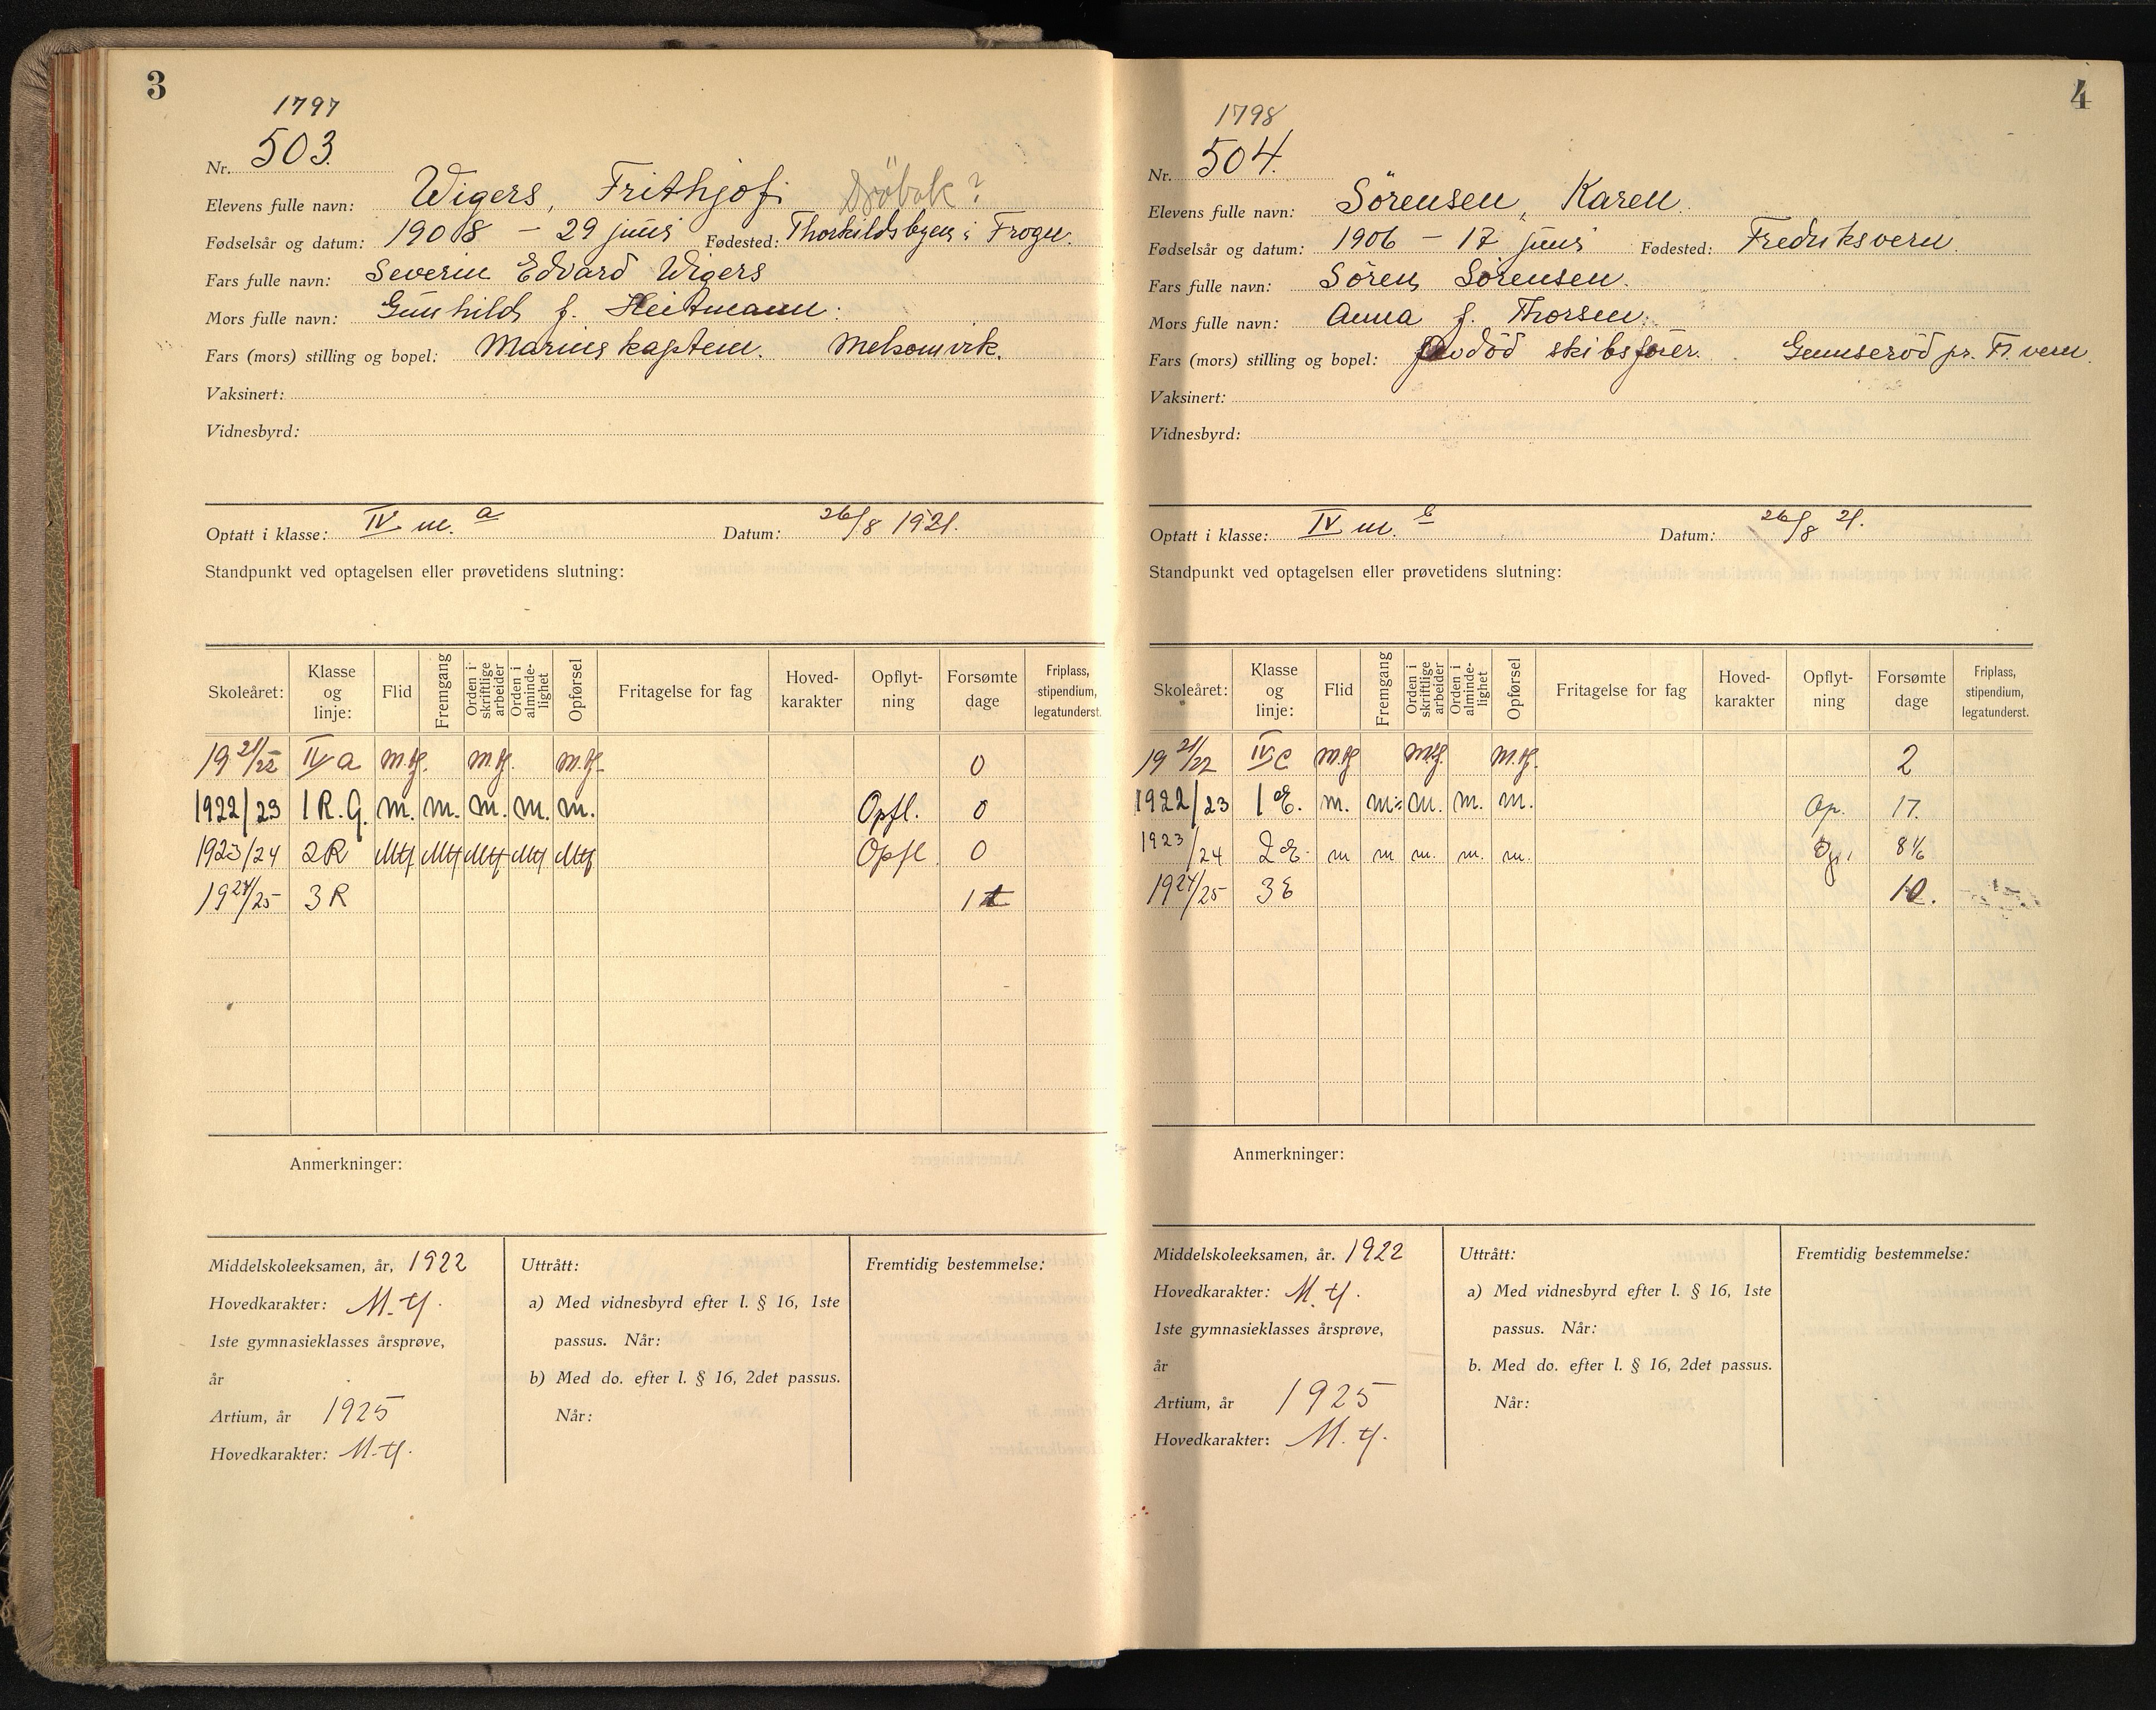 3
1797
Nr. 503.
Elevens fulle navn: Wigers, Frithjof. Dröbak?
Fødselsår og datum: 1908 - 29 juni Fødested: Thorkildsbyen i Frogn.
Fars fulle navn: Severin Edvard Wigers
Mors fulle navn: Gunhild f. Heitmann.
Fars (mors) stilling og bopel: Marinekaptein. Melsomvik.
Vaksinert:
Vidnesbyrd:
Optatt i klasse: IV m. a Datum: 26/8 1921.
Standpunkt ved optagelsen eller prøvetidens slutning:
Skoleåret: Klasse og linje: Flid Fremgang Orden i skriftlige arbeider Orden i alminde-lighet Opførsel Fritagelse for fag Hoved-karakter Opflyt-ning Forsømte dage Friplass, stipendium, legatunderst.
19 21/22 IV a m.tf. m.tf. m.tf. 0
1922/23 1 R.G. m. m. m. m. m. Opfl. 0
1923/24 2R Mtf Mtf Mtf Mtf Mtf Opfl. 0
19 24/25 3 R 1 t
Anmerkninger:
Middelskoleeksamen, år, 1922
Hovedkarakter: M.tf.
1ste gymnasieklasses årsprøve,
år
Artium, år 1925
Hovedkarakter: M.tf.
Uttrått:
a) Med vidnesbyrd efter l. § 16, 1ste
passus. Når:
b) Med do. efter l. § 16, 2det passus.
Når:
Fremtidig bestemmelse:
4
1798
Nr. 504.
Elevens fulle navn: Sörensen, Karen.
Fødselsår og datum: 1906 - 17 juni Fødested: Fredriksvern.
Fars fulle navn: Sören Sörensen.
Mors fulle navn: Anna f. Thorsen.
Fars (mors) stilling og bopel: avdöd skibsförer. pr. Fr.vern.
Vaksinert:
Vidnesbyrd:
Optatt i klasse: IV m. Datum: 26/8 21.
Standpunkt ved optagelsen eller prøvetidens slutning:
Skoleåret: Klasse og linje: Flid Fremgang Orden i skriftlige arbeider Orden i alminde-lighet Opførsel Fritagelse for fag Hoved-karakter Opflyt-ning Forsømte dage Friplass, stipendium, legatunderst.
19 21/22 IV c m.tf m.tf. m.tf. 2
1922/23 1 E. m. m. m. m. m. Op. 17.
1923/24 2 E. m m m. m. m. Op. 8 1/6
19 24/25 3 E 10.
Anmerkninger:
Middelskoleeksamen, år. 1922
Hovedkarakter: M.tf.
1ste gymnasieklasses årsprøve,
år
Artium, år 1925
Hovedkarakter: M.tf.
Uttrått:
a) Med vidnesbyrd efter l. § 16, 1ste
passus. Når:
b. Med do. efter l. § 16, 2det passus.
Når:
Fremtidig bestemmelse: